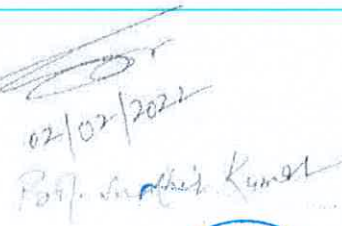 02/02/2022
Prof. Sudhir Kumar